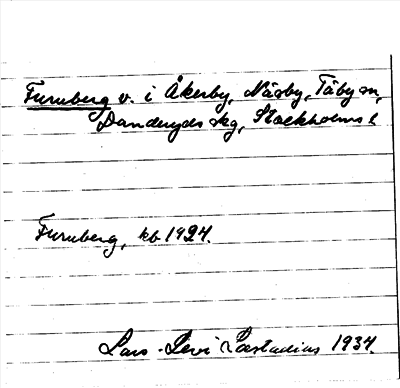 Furuberg v. i Åkerby, Näsby, Täby sn,
Danderyds skg, Stockholms l.
Furuberg, kb 1924.
Lars-Levi Læstadius 1934.